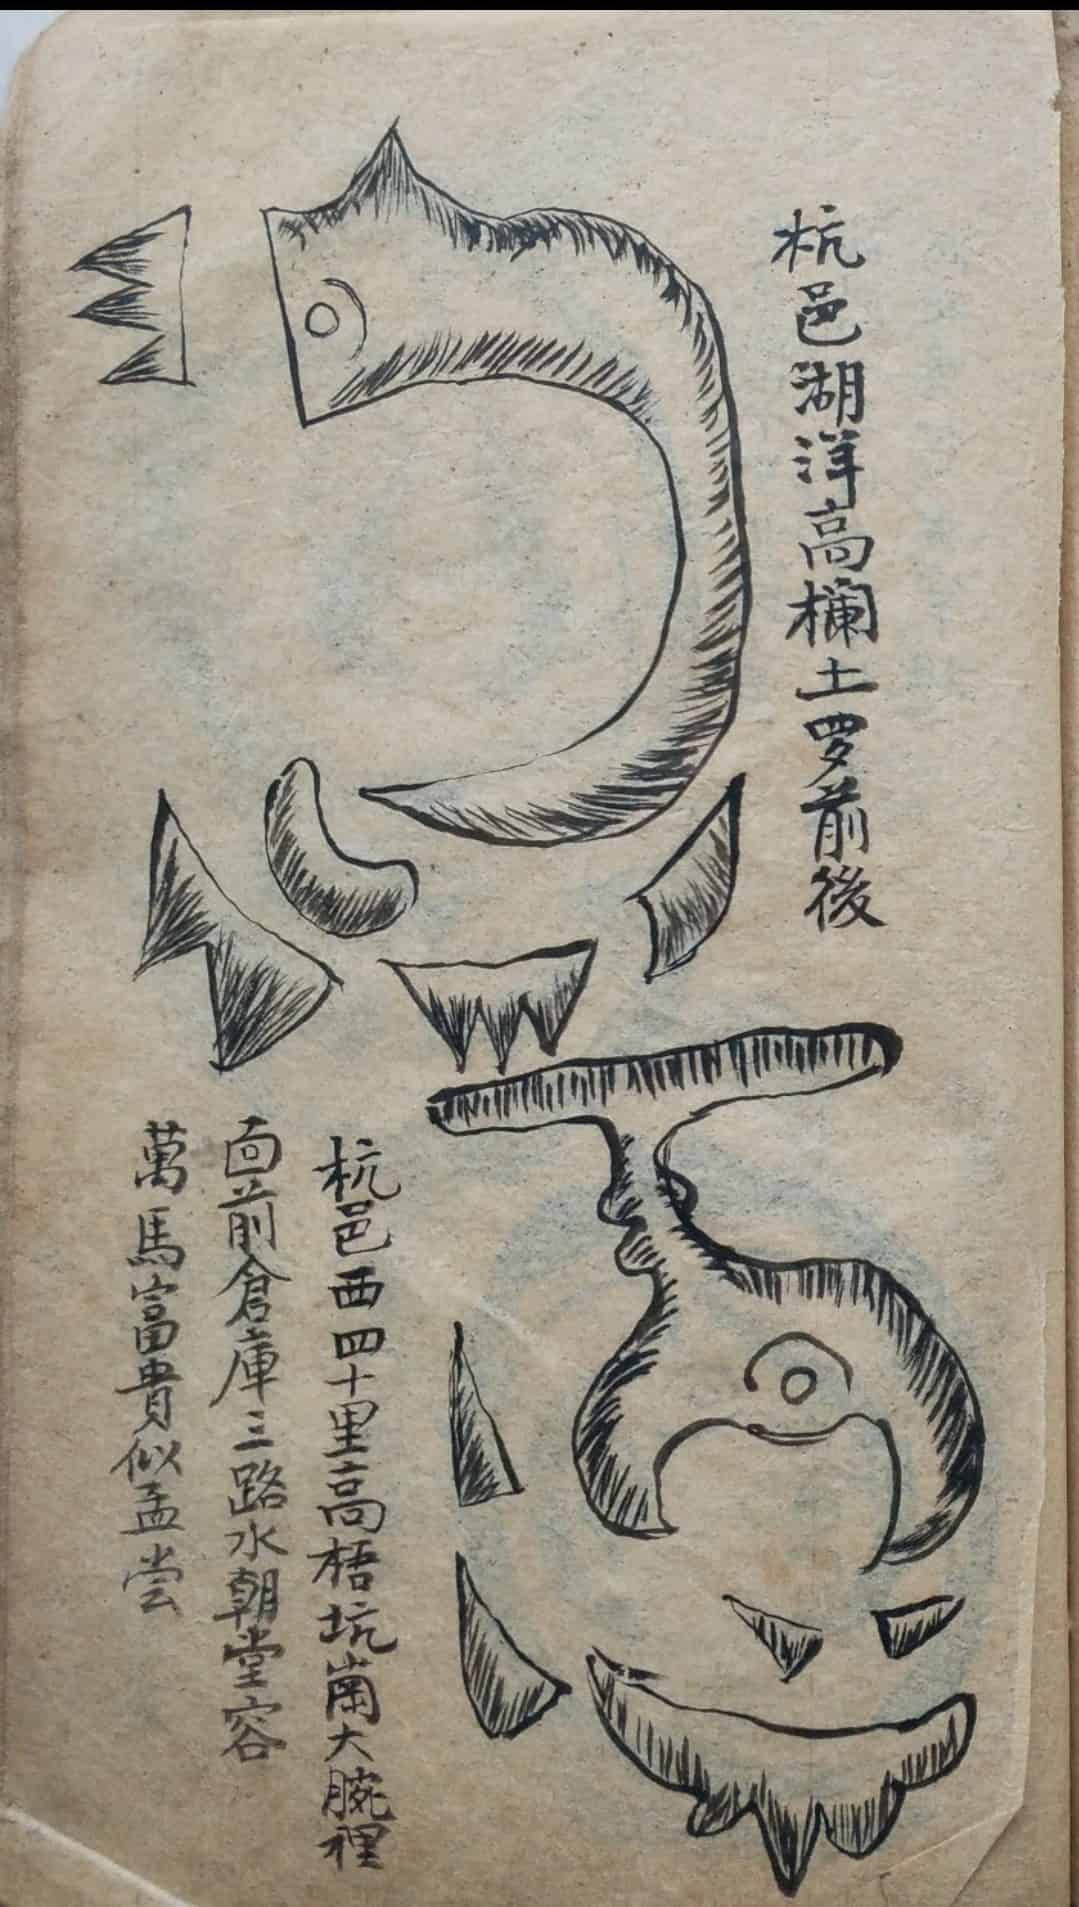 杭邑湖洋高欄土罗前後
杭邑西四十里高梧坑崗大腕裡
面前倉庫三路水朝堂容
萬馬富貴似孟尝